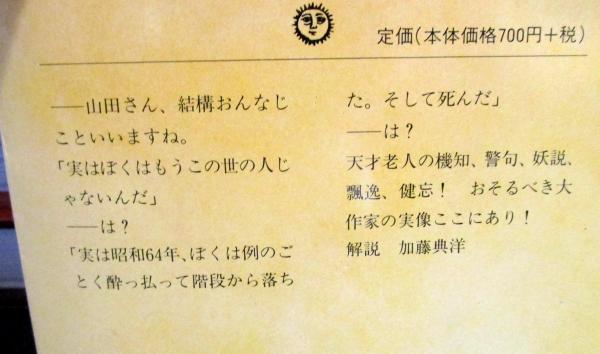 定価(本体価格700円+税)
──山田さん、結構おんなじ
こといいますね。
「実はぼくはもうこの世の人じ
ゃないんだ」
──は？
「実は昭和64年、ぼくは例のご
とく酔っ払って階段から落ち
た。そして死んだ」
──は？
天才老人の機知、警句、妖説、
飄逸、健忘！　おそるべき大
作家の実像ここにあり！
解説　加藤典洋